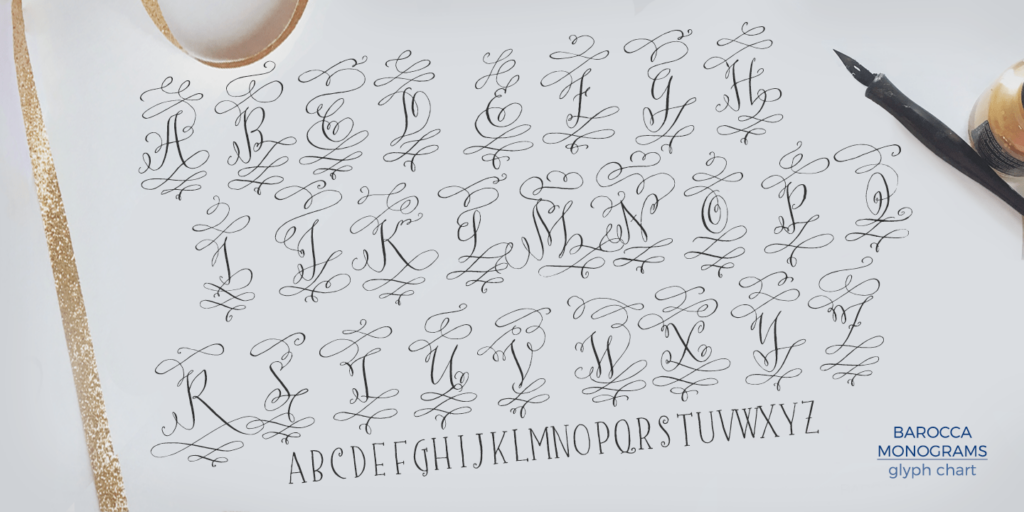 A B C D E F G H
I J K L M N O P Q
R S T U V W X Y Z
ABCDEFGHIJKLMNOPQRSTUVWXYZ
BAROCCA
MONOGRAMS
glyph chart